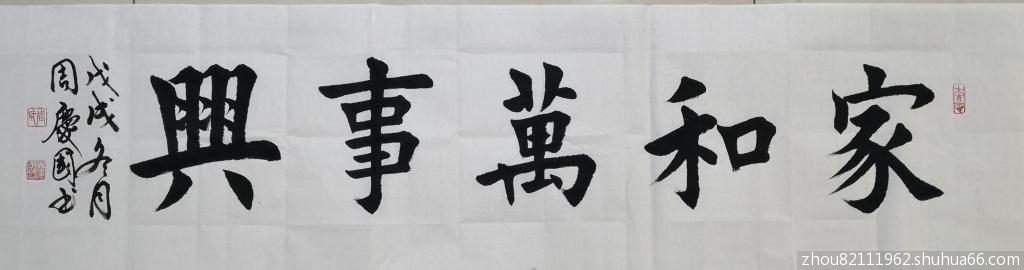 家和萬事興
戊戌冬月
周慶國书
zhou82111962.shuhua66.com